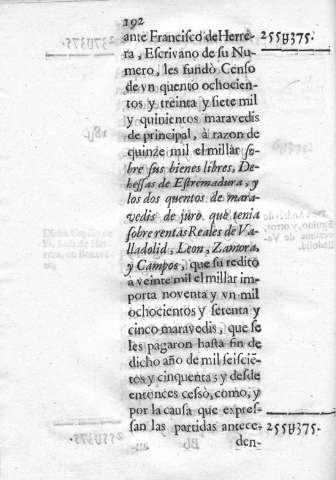 192
ante Francisco de Herre- 255U375.
ra, Escrivano de su Nu-
mero, les fundò Censo
de vn quento ochocien-
tos y treinta y siete mil
y quinientos maravedis
de principal, à razon de
quinze mil el millar so-
bre sus bienes libres, De-
hessas de Estremadura, y
los dos quentos de mara-
vedis de juro que tenia
sobre rentas Reales de Va-
lladolid, Leon, Zamora,
y Campos, que su redito
à veinte mil el millar im-
porta noventa y vn mil
ochocientos y setenta y
cinco maravedis, que se
les pagaron hasta fin de
dicho año de mil seiscië-
tos y cinquenta; y desde
entonces cessò, como, y
por la causa que expres-
san las partidas antece- 255U375.
den-